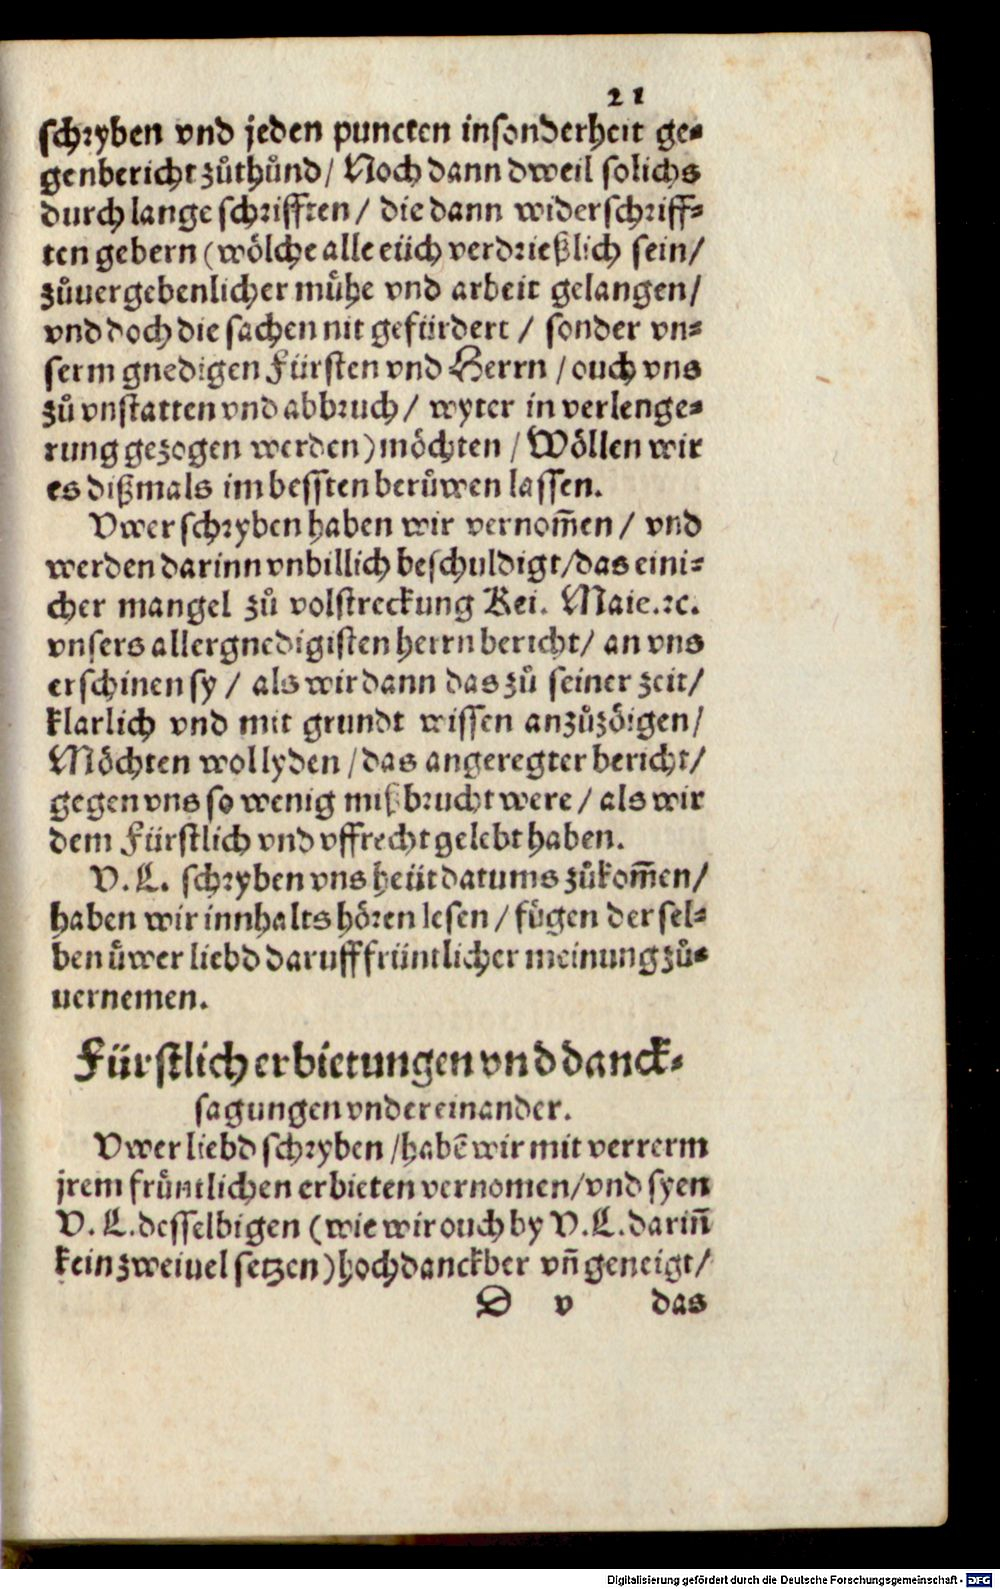 21
schryben vnd jeden puncten insonderheit ge-
genbericht zůthůnd / Noch dann dweil solichs
durch lange schrifften / die dann widerschriff-
ten gebern (wölche alle eüch verdrießlich sein /
zůuergebenlicher mühe vnd arbeit gelangen /
vnd doch die sachen nit gefürdert / sonder vn-
serm gnedigen Fürsten vnd Herrn / ouch vns
zů vnstatten vnd abbruch / wyter in verlenge-
rung gezogen werden) möchten / Wöllen wir
es dißmals im bessten berůwen lassen.
Vwer schryben haben wir vernom̄en / vnd
werden darinn vnbillich beschuldigt / das eini-
cher mangel zů volstreckung Kei. Maie. ꝛc.
vnsers allergnedigisten herrn bericht / an vns
erschinen sy / als wir dann das zů seiner zeit /
klarlich vnd mit grundt wissen anzůzöigen /
Möchten wol lyden / das angeregter bericht /
gegen vns so wenig mißbrucht were / als wir
dem Fürstlich vnd vffrecht gelebt haben.
V. L. schryben vns heüt datums zůkom̄en /
haben wir innhalts hören lesen / fügen der sel-
ben üwer liebd daruff früntlicher meinung zů-
uernemen.
Fürstlich erbietungen vnd danck-
sagungen vnder einander.
Vwer liebd schryben / habē wir mit verrerm
jrem früntlichen erbieten vernomen / vnd syen
V. L. desselbigen (wie wir ouch by V. L. dariñ
kein zweiuel setzen) hochdanckber vñ geneigt /
D v das
Digitalisierung gefördert durch die Deutsche Forschungsgemeinschaft - DFG